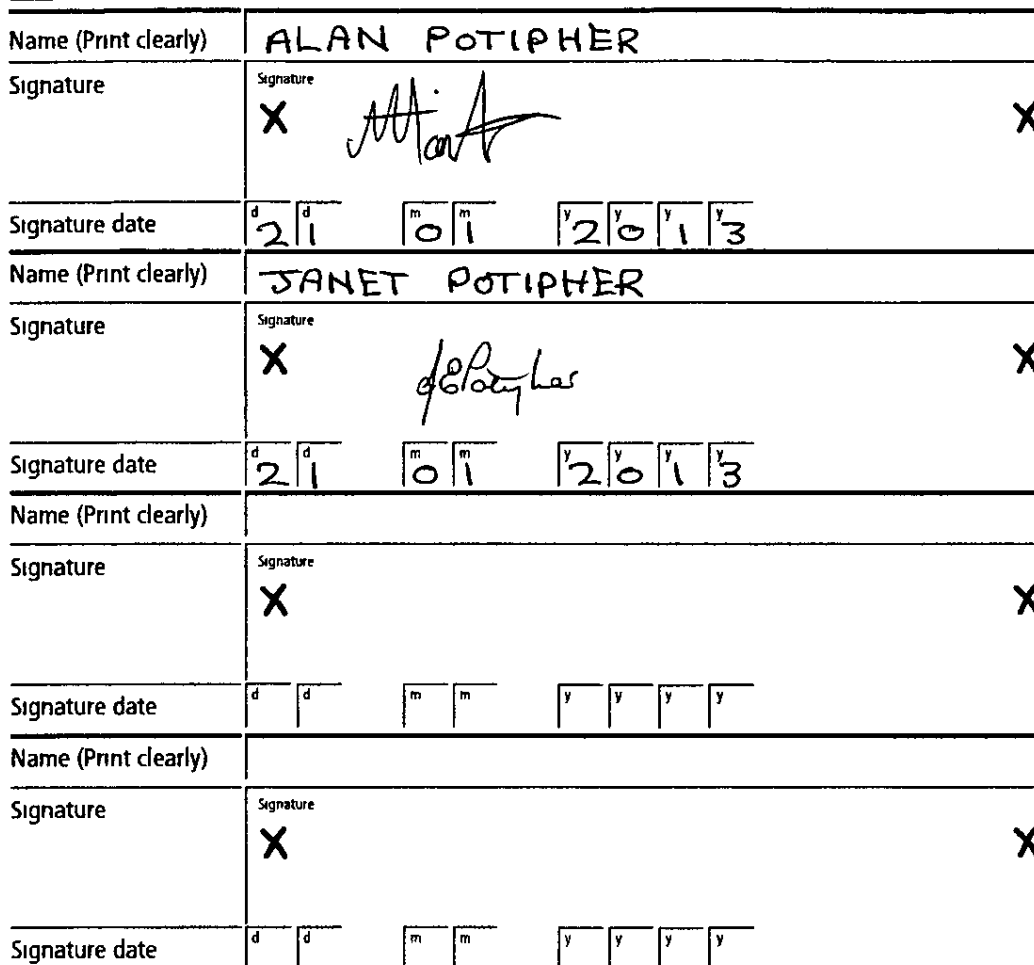 Name (Print clearly) ALAN POTIPHER
Signature Signature
X X
Signature date d2 d1 m0 m1 y2 y0 y1 y3
Name (Print clearly) JANET POTIPHER
Signature Signature
X JEPotipher X
Signature date d2 d1 m0 m1 y2 y0 y1 y3
Name (Print clearly)
Signature Signature
X X
Signature date d d m m y y y y
Name (Print clearly)
Signature Signature
X X
Signature date d d m m y y y y